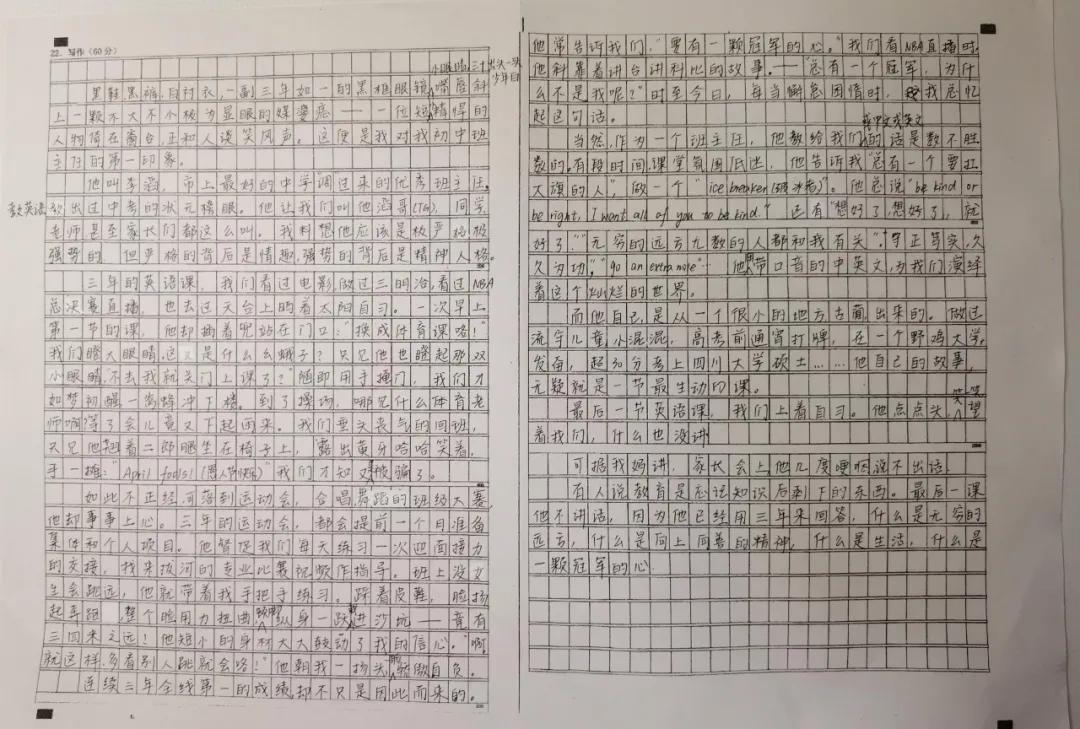 22. 写作（60分）
小眼睛,三十出头一头
少年白
黑鞋黑裤,白衬衣,一副三年如一的黑框眼镜,嘴唇斜
上一颗不大不小极为显眼的媒婆痣——一位短小精悍的
人物倚在窗台,正和人谈笑风声。这便是我对我初中班
主任的第一印象。
他叫李涵,市上最好的中学调过来的优秀班主任。
教英语 教出过中考的状元榜眼。他让我们叫他涵哥(TG),同学,
老师甚至家长们都这么叫。我料想他应该是极严格极
强势的。但严格的背后是情趣,强势的背后是精神人格。
三年的英语课,我们看过电影,做过三明治,看过NBA
总决赛直播,也去过天台上晒着太阳自习。一次早上
第一节的课,他却揣着兜站在门口:“换成体育课咯!”
我们瞪大眼睛,这又是什么幺蛾子?只见他也瞪起那双
小眼睛,“不去我就关门上课了?”随即用手掩门,我们才
如梦初醒一窝蜂冲下楼。到了操场,哪见什么体育老
师啊?等了会儿竟又下起雨来。我们垂头丧气的回班,
只见他翘着二郎腿坐在椅子上,露出黄牙哈哈笑着,
手一摊:“April fools!(愚人节快乐)”我们才知又被骗了。
如此不正经,可落到运动会,合唱,舞蹈的班级大赛,
他却事事上心。三年的运动会,都会提前一个月准备
集体和个人项目。他督促我们每天练习一次迎面接力
的交接,找来拔河的专业比赛视频作指导。班上没女
生会跳远,他就带着我手把手练习。踩着皮鞋,脸扬
起弄踏,整个脸用力扭曲,纵身一跃进沙坑——竟有
三四米之远!他短小的身材大大鼓动了我的信心。“啊,
就这样,多看别人跳就会咯!”他朝我一扬头,骄傲自负。
连续三年全线第一的成绩,却不只是因此而来的。
他常告诉我们,“要有一颗冠军的心。”我们看NBA直播时,
他斜靠着讲台讲科比的故事。——“总有一个冠军,为什
么不是我呢?”时至今日,每当懈怠困惰时,我总忆
起这句话。
带中文或英文
当然,作为一个班主任,他教给我们的话是数不胜
数的,有段时间课堂氛围低迷,他告诉我“总有一个要扛
大旗的人”,做一个“ice breaker(破冰者)”。他总说“be kind or
be right, I want all of you to be kind.”还有“想好了,想好了,就
好了”“无穷的远方,无数的人都和我有关”“守正笃实,久
久为功”,“go an extra mile”…他用带口音的中英文,为我们演绎
着这个灿烂的世界。
而他自己,是从一个很小的地方古蔺出来的。做过
流守儿童,小混混,高考前通宵打牌,在一个野鸡大学,
发奋,超30分考上四川大学硕士……他自己的故事,
无疑就是一节最生动的课。
最后一节英语课,我们上着自习。他点点头,笑笑望
着我们,什么也没讲
可据我妈讲,家长会上他几度哽咽说不出话。
有人说教育是忘记知识后剩下的东西。最后一课
他不讲话,因为他已经用三年来回答,什么是无穷的
远方,什么是向上向善的精神,什么是生活,什么是
一颗冠军的心